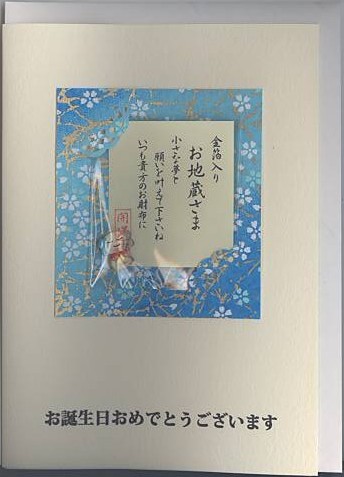 金箔入り
お地蔵さま
小さな夢と
願いを叶えて下さいね
いつも貴方のお財布に
開運
お誕生日おめでとうございます